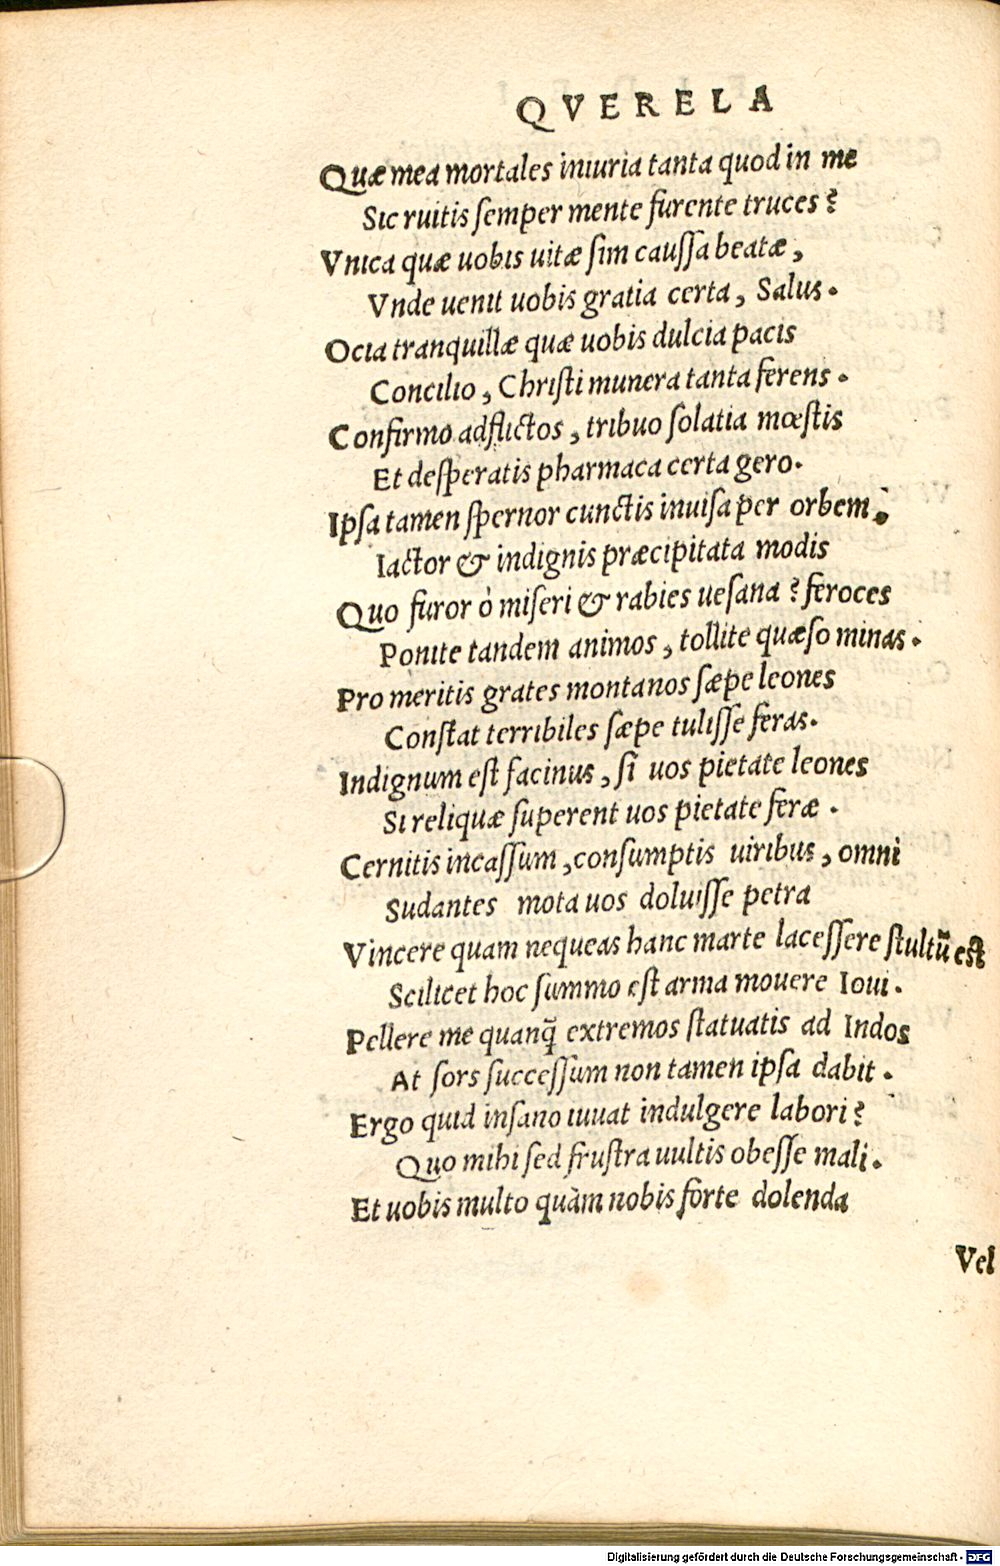 QVERELA
Quæ mea mortales iniuria tanta quod in me
Sic ruitis ſemper mente furente truces?
Vnica quæ uobis uitæ ſim cauſſa beatæ,
Vnde uenit uobis gratia certa, Salus.
Ocia tranquillæ quæ uobis dulcia pacis
Concilio, Chriſti munera tanta ferens.
Confirmo adflictos, tribuo ſolatia mœſtis
Et deſperatis pharmaca certa gero.
Ipſa tamen ſpernor cunctis inuiſa per orbem,
Iactor & indignis præcipitata modis
Quo furor ò miſeri & rabies ueſana? feroces
Ponite tandem animos, tollite quæſo minas.
Pro meritis grates montanos ſæpe leones
Conſtat terribiles ſæpe tuliſſe feras.
Indignum eſt facinus, ſi uos pietate leones
Si reliquæ ſuperent uos pietate feræ.
Cernitis incaſſum, conſumptis uiribus, omni
Sudantes mota uos doluiſſe petra
Vincere quam nequeas hanc marte laceſſere ſtultū eſt
Scilicet hoc ſummo eſt arma mouere Ioui.
Pellere me quanq̃ extremos ſtatuatis ad Indos
At ſors ſucceſſum non tamen ipſa dabit.
Ergo quid inſano iuuat indulgere labori?
Quo mihi ſed fruſtra uultis obeſſe mali.
Et uobis multo quàm nobis forte dolenda
Vel
Digitalisierung gefördert durch die Deutsche Forschungsgemeinschaft - DFG